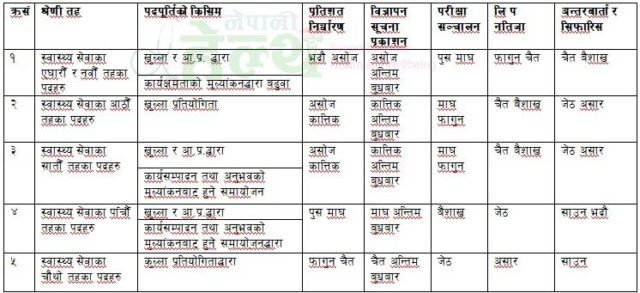 क्रसं श्रेणी तह पदपूर्तिको किसिम प्रतिशत निर्धारण विज्ञापन सूचना प्रकाशन परीक्षा सञ्चालन लि प नतिजा अन्तरबार्ता र सिफारिस
नेपाली
हेल्थ
१ स्वास्थ्य सेवाका एघारौँ र नवौँ तहका पदहरु खुल्ला र आ.प्र. द्धारा भदौ असोज असोज अन्तिम बुधबार पुस माघ फागुन चैत चैत बैशाख
कार्यक्षमताको मुल्यांकनद्वारा बढुवा
२ स्वास्थ्य सेवाका आठौँ तहका पदहरु खुल्ला प्रतियोगिता असोज कात्तिक कात्तिक अन्तिम बुधबार माघ फागुन चैत बैशाख जेठ असार
३ स्वास्थ्य सेवाका सातौँ तहका पदहरु खुल्ला र आ.प्र.द्धारा असोज कात्तिक कात्तिक अन्तिम बुधबार माघ फागुन चैत बैशाख जेठ असार
कार्यसम्पादन तथा अनुभवको मुल्यांकनबाट हुने समायोजन
४ स्वास्थ्य सेवाका पाँचौँ तहका पदहरु खुल्ला र आ.प्र.द्धारा पुस माघ माघ अन्तिम बुधबार बैशाख जेठ साउन भदौ
कार्यसम्पादन तथा अनुभवको मुल्यांकनबाट हुने समायोजनद्धारा
५ स्वास्थ्य सेवाका चौथो तहका पदहरु कुल्ला प्रतियोगिताद्धारा फागुन चैत चैत अन्तिम बुधबार जेठ असार साउन